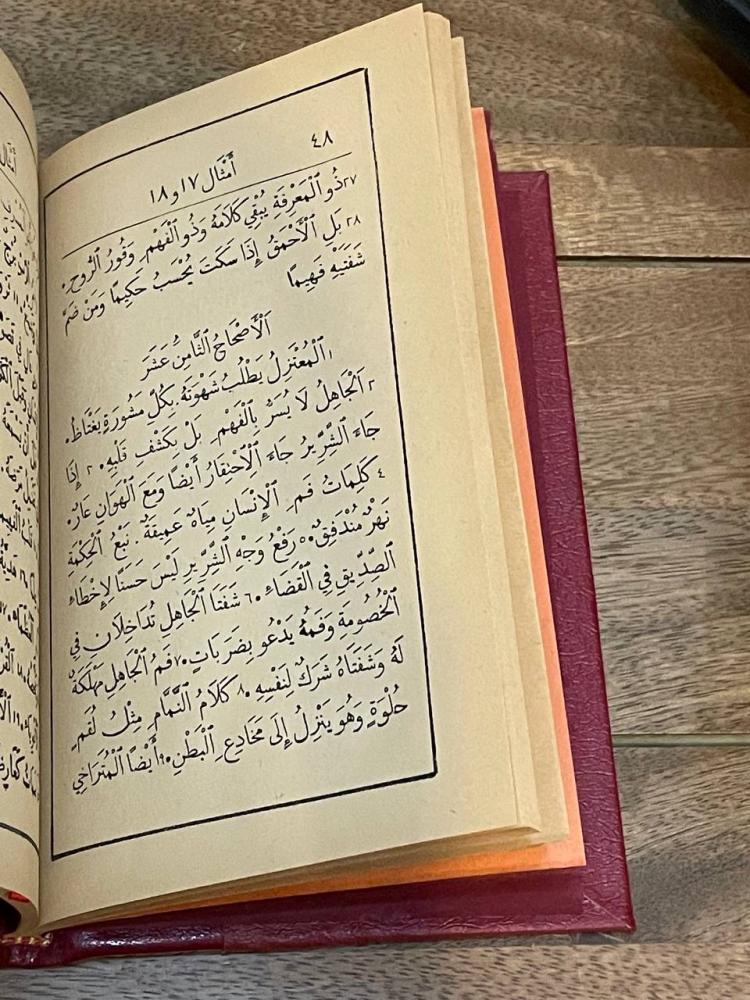 ٤٨
أَمْثَال ١٧ و ١٨
٢٧ ذُو ٱلْمَعْرِفَةِ يُبْقِي كَلَامَهُ وَذُو ٱلْفَهْمِ وَقُورُ ٱلرُّوحِ.
٢٨ بَلِ ٱلْأَحْمَقُ إِذَا سَكَتَ يُحْسَبُ حَكِيمًا وَمَنْ ضَمَّ
شَفَتَيْهِ فَهِيمًا
ٱلْأَصْحَاحُ ٱلثَّامِنُ عَشَرَ
١ ٱلْمُعْتَزِلُ يَطْلُبُ شَهْوَتَهُ. بِكُلِّ مَشُورَةٍ يَغْتَاظُ.
٢ ٱلْجَاهِلُ لَا يُسَرُّ بِٱلْفَهْمِ بَلْ بِكَشْفِ قَلْبِهِ. ٣ إِذَا
جَاءَ ٱلشِّرِّيرُ جَاءَ ٱلِٱحْتِقَارُ أَيْضًا وَمَعَ ٱلْهَوَانِ عَارٌ.
٤ كَلِمَاتُ فَمِ ٱلْإِنْسَانِ مِيَاهٌ عَمِيقَةٌ. نَبْعُ ٱلْحِكْمَةِ
نَهْرٌ مُنْدَفِقٌ. ٥ رَفْعُ وَجْهِ ٱلشِّرِّيرِ لَيْسَ حَسَنًا لِإِخْطَاءِ
ٱلصِّدِّيقِ فِي ٱلْقَضَاءِ. ٦ شَفَتَا ٱلْجَاهِلِ تُدَاخِلَانِ فِي
ٱلْخُصُومَةِ وَفَمُهُ يَدْعُو بِضَرَبَاتٍ. ٧ فَمُ ٱلْجَاهِلِ مَهْلَكَةٌ
لَهُ وَشَفَتَاهُ شَرَكٌ لِنَفْسِهِ. ٨ كَلَامُ ٱلنَّمَّامِ مِثْلُ لُقَمٍ
حُلْوَةٍ وَهُوَ يَنْزِلُ إِلَى مَخَادِعِ ٱلْبَطْنِ. ٩ أَيْضًا ٱلْمُتَرَاخِي